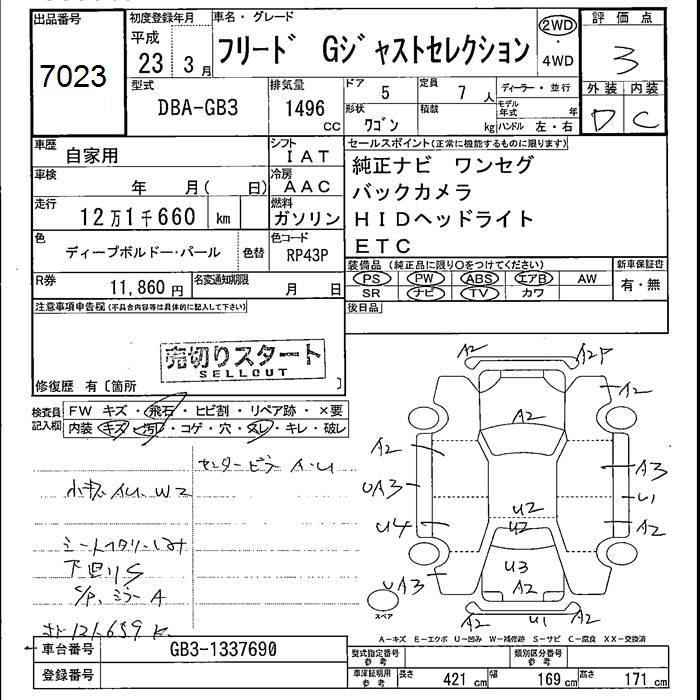 出品番号
7023
初度登録年月
平成
23 3月
車名・グレード
フリード Gジャストセレクション
2WD
・
4WD
評価点
3
外装 内装
D C
型式
DBA-GB3
排気量
1496
CC
ドア
5
定員
7人
形状
ワゴン
積載
kg
ディーラー・並行
モデル年式 年
ハンドル 左・右
車歴
自家用
シフト
IAT
車検
年 月( 日)
冷房
AAC
走行
12万1千660 km
燃料
ガソリン
色
ディープボルドー・パール
色替
色コード
RP43P
R券
11,860円
名変通知期限
月 日
セールスポイント(正常に機能するものに限ります)
純正ナビ ワンセグ
バックカメラ
HIDヘッドライト
ETC
装備品 (純正品に限り○をつけてください)
PS PW ABS エアB AW
SR ナビ TV カワ
新車保証書
有・無
後日品
注意事項申告欄(不具合内容等は具体的に記入して下さい)
売切りスタート
SELLOUT
修復歴 有〔箇所 〕
検査員記入欄
FW キズ・飛石・ヒビ割・リペア跡・×要
内装 キズ・汚レ・コゲ・穴・スレ・キレ・破レ
センターピラー A.U
小キズ AU. W2
下廻りS
A2
A2P
A2
A2
A2
A3
UA3
U1
U2
U4
U2
A2
U3
UA3
A2
スペア
A2
U1
A2
A-キズ E-エクボ U-凹み W-補修跡 S-サビ C-腐食 XX-交換済
車台番号
GB3-1337690
登録番号
型式指定番号
参考
類別区分番号
参考
車庫証明用
参考
長さ 421 cm
幅 169 cm
高さ 171 cm